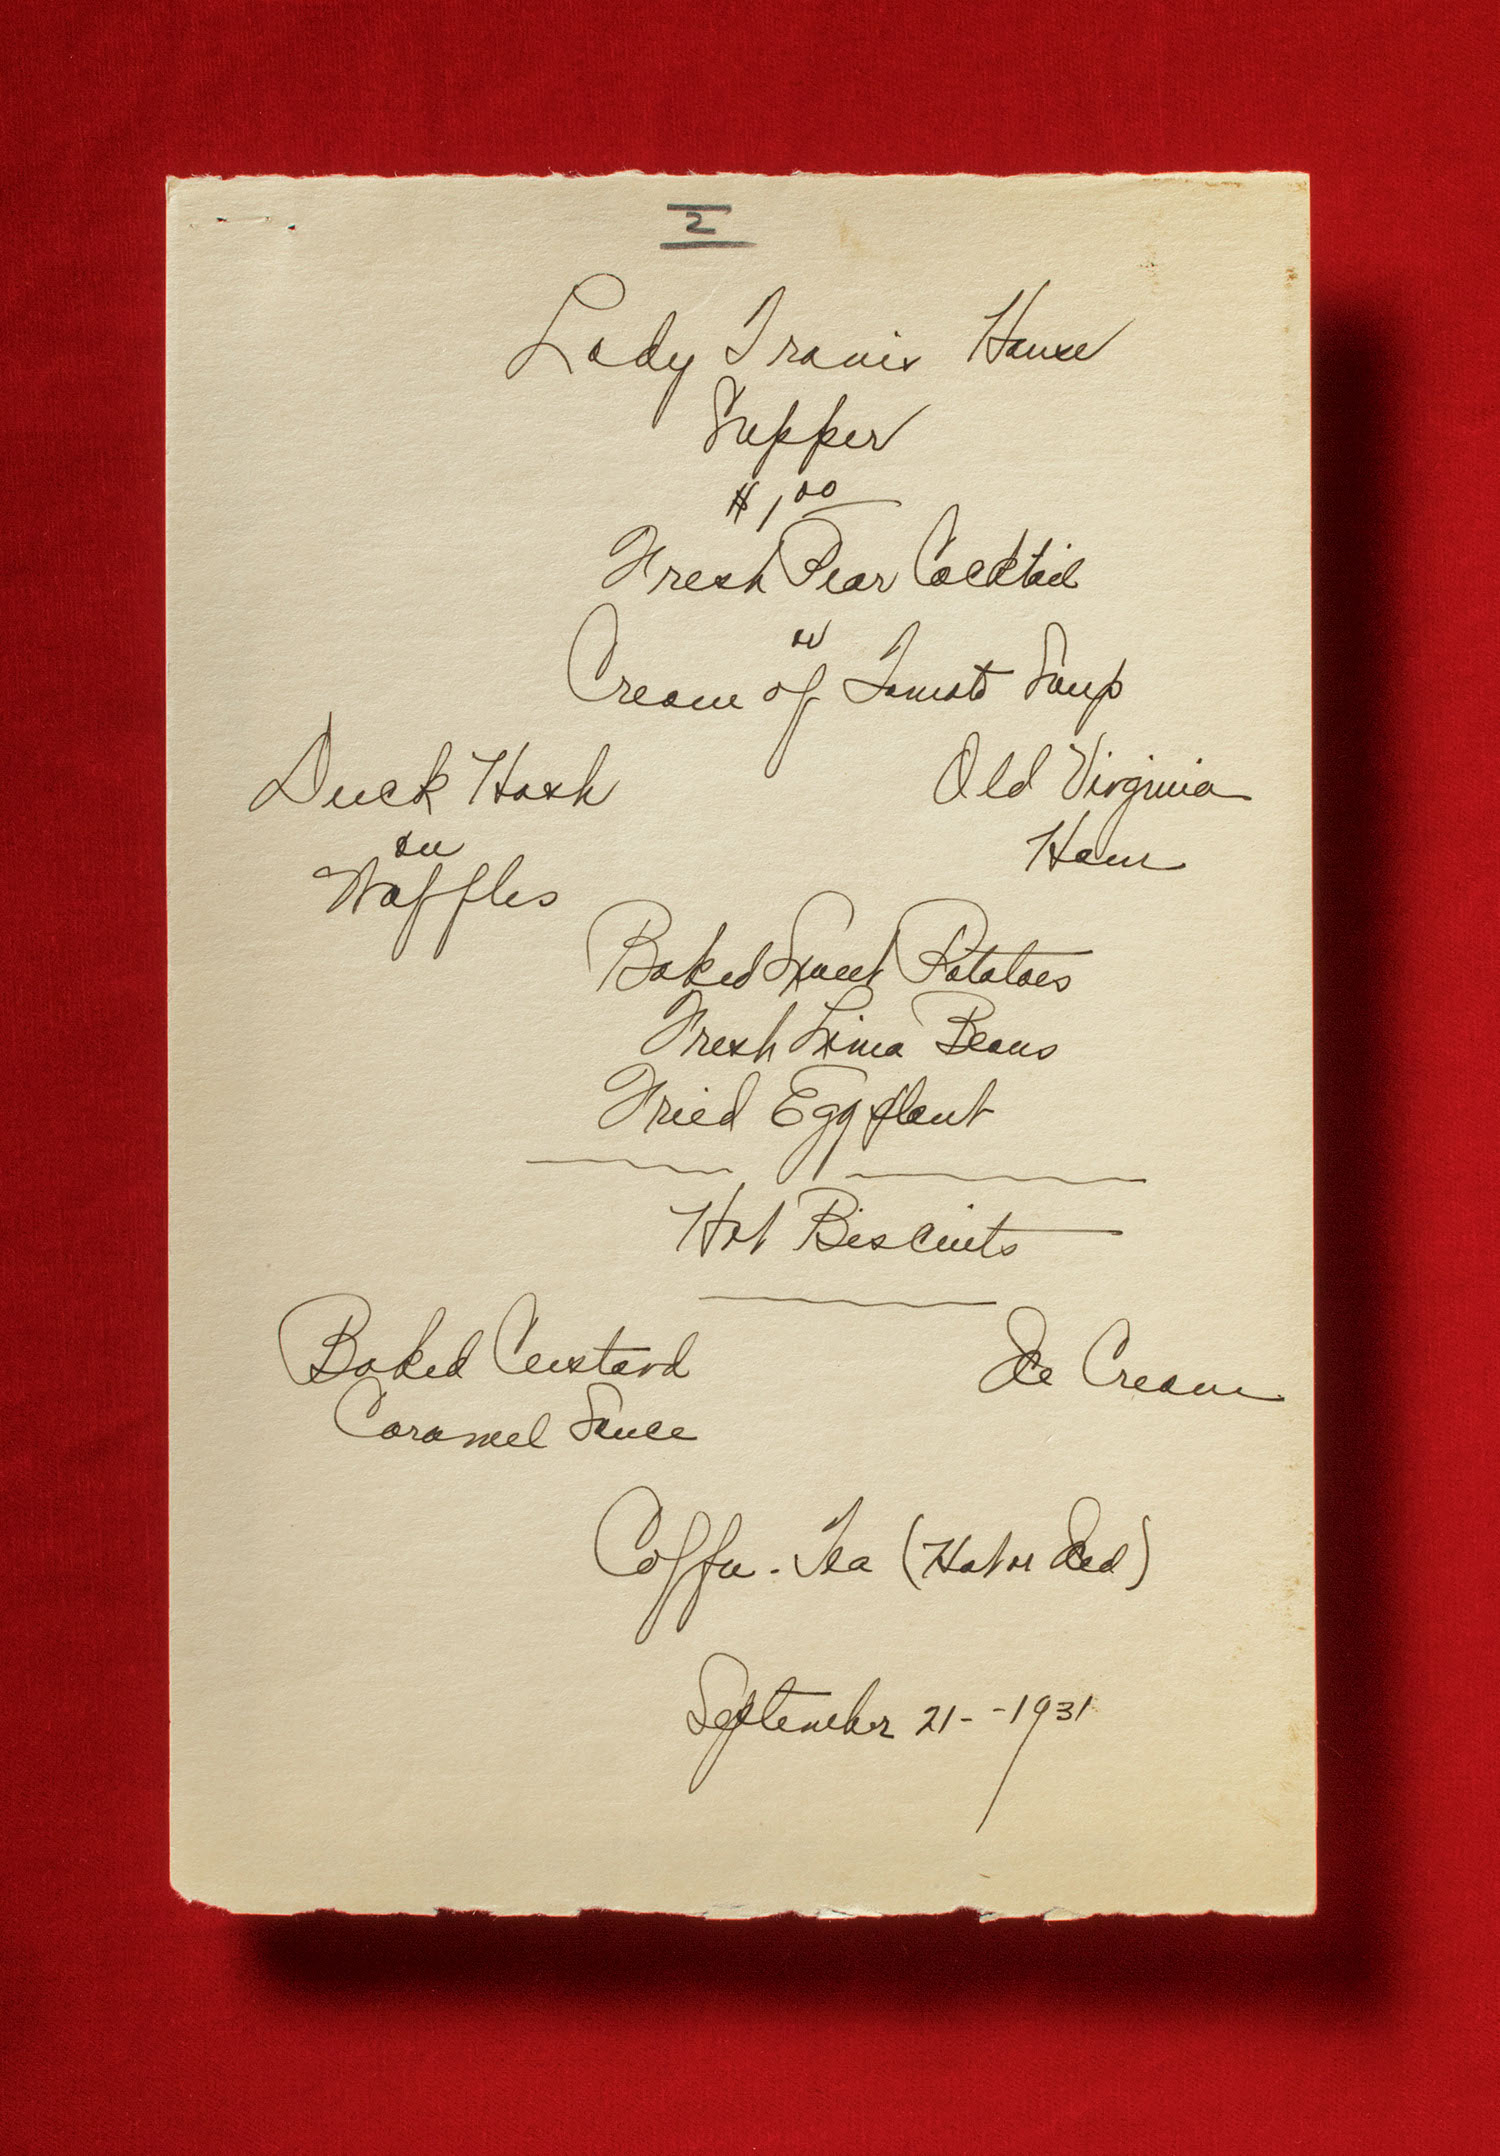 2
Lady Travis House
Supper
$1.00
Fresh Pear Cocktail
or
Cream of Tomato Soup
Duck Hash
on
Waffles
Old Virginia
Ham
Baked Sweet Potatoes
Fresh Lima Beans
Fried Egg plant
Hot Biscuits
Baked Custard
Caramel Sauce
Ice Cream
Coffee - Tea (Hot or Iced)
September 21 - - 1931